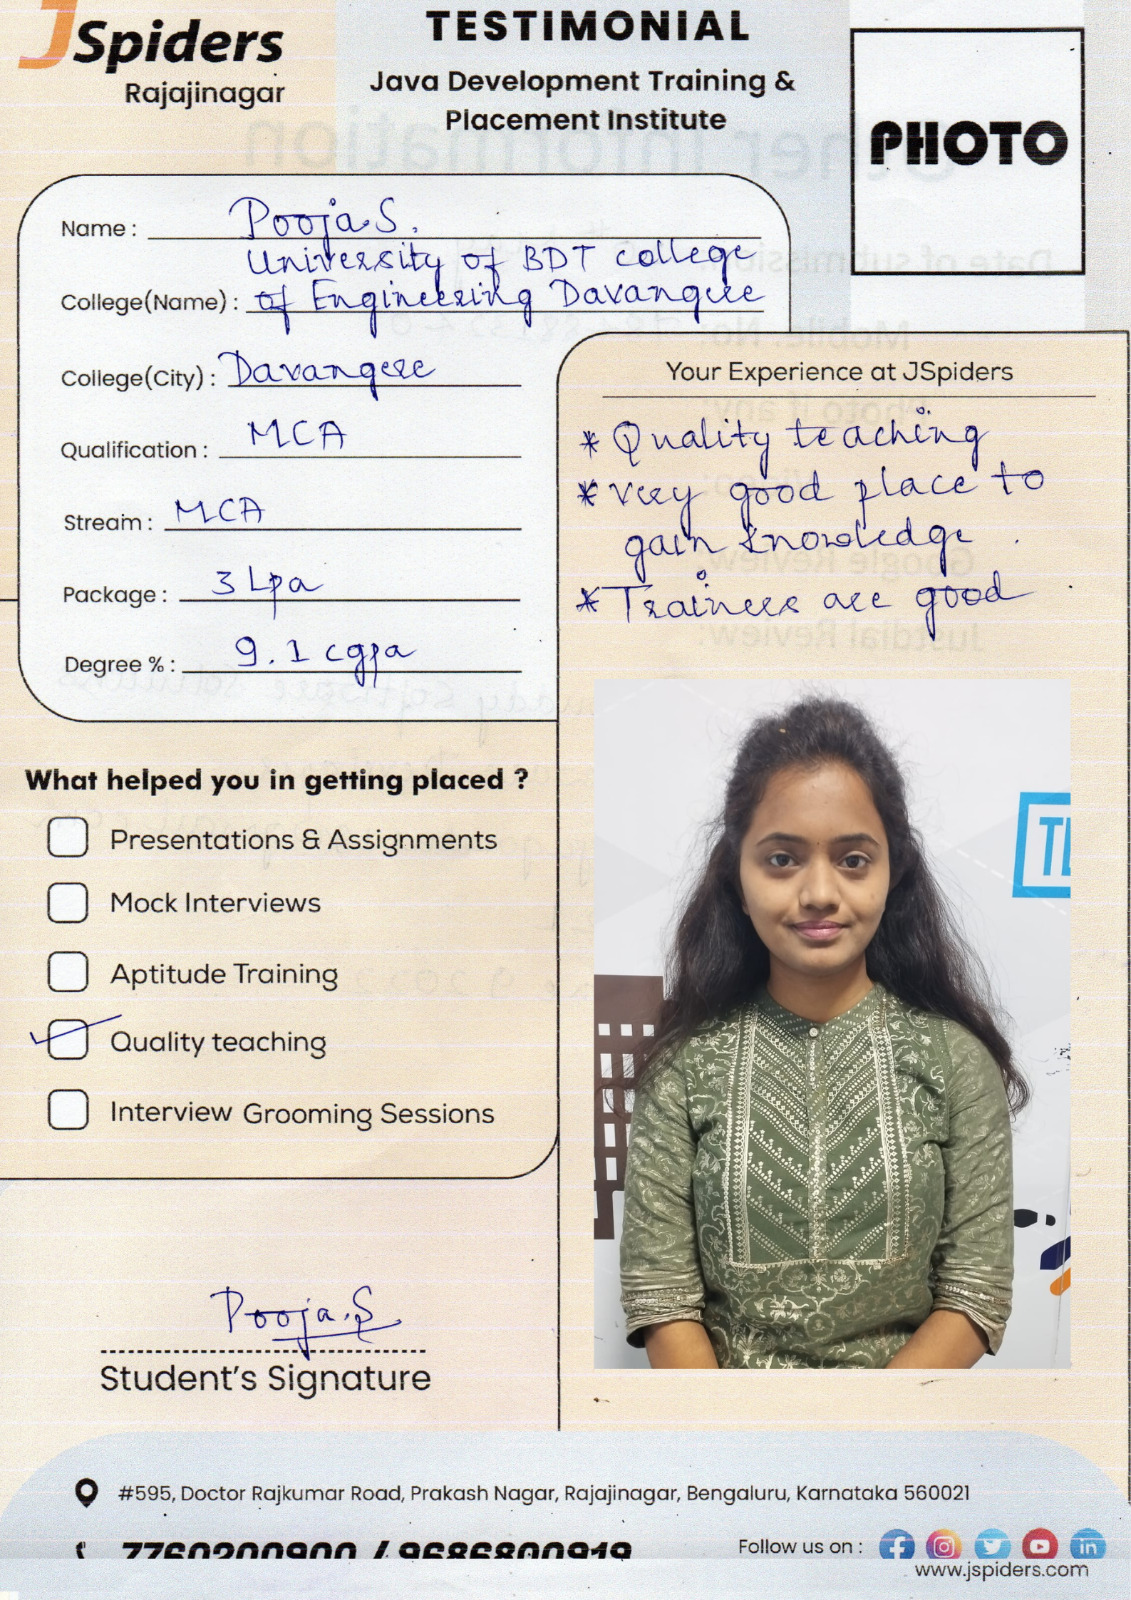 JSpiders
Rajajinagar
TESTIMONIAL
Java Development Training &
Placement Institute
PHOTO
Name : Pooja.S.
University of BDT college
College(Name) : of Engineering Davangere
College(City) : Davangere
Qualification : MCA
Stream : MCA
Package : 3 Lpa
Degree % : 9.1 cgpa
Your Experience at JSpiders
* Quality teaching
* Very good place to
gain knowledge .
* Trainers are good
What helped you in getting placed ?
Presentations & Assignments
Mock Interviews
Aptitude Training
Quality teaching
Interview Grooming Sessions
Pooja.S
Student's Signature
#595, Doctor Rajkumar Road, Prakash Nagar, Rajajinagar, Bengaluru, Karnataka 560021
7760200900 / 9686800919
Follow us on :
www.jspiders.com